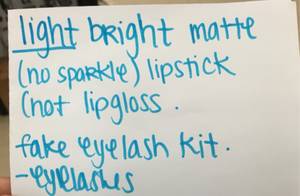 light bright matte
(no sparkle) lipstick
(not lipgloss.
fake eyelash kit.
-eyelashes